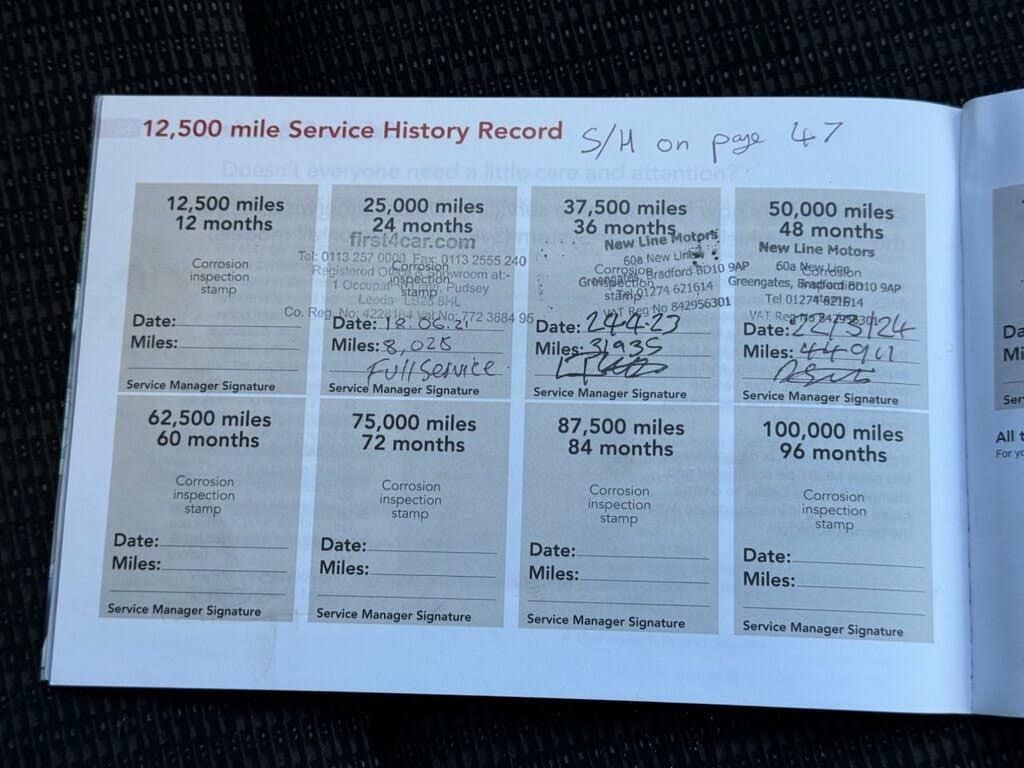 12,500 mile Service History Record S/H on page 47
12,500 miles
12 months
Corrosion
inspection
stamp
Date:
Miles:
Service Manager Signature
25,000 miles
24 months
first4car.com
Tel: 0113 257 0000 Fax: 0113 2555 240
Registered Office & Showroom at:-
Corrosion
inspection
stamp
1 Occupat Pudsey
Leeds LS28 8HL
Co. Reg. No: 4228164 Vat No: 772 3884 95
Date: 18.06.21
Miles: 8,028
Full Service
Service Manager Signature
37,500 miles
36 months
New Line Motors
60a New Line
Greengates, Bradford BD10 9AP
Corrosion
inspection
stamp
Tel 01274 621614
VAT Reg No 842956301
Date: 24.4.23
Miles: 31935
Service Manager Signature
50,000 miles
48 months
New Line Motors
60a New Line
Corrosion
inspection
stamp
Greengates, Bradford BD10 9AP
Tel 01274 621614
VAT Reg No 842956301
Date: 22/3/24
Miles:
Service Manager Signature
62,500 miles
60 months
Corrosion
inspection
stamp
Date:
Miles:
Service Manager Signature
75,000 miles
72 months
Corrosion
inspection
stamp
Date:
Miles:
Service Manager Signature
87,500 miles
84 months
Corrosion
inspection
stamp
Date:
Miles:
Service Manager Signature
100,000 miles
96 months
Corrosion
inspection
stamp
Date:
Miles:
Service Manager Signature
All t
For yo